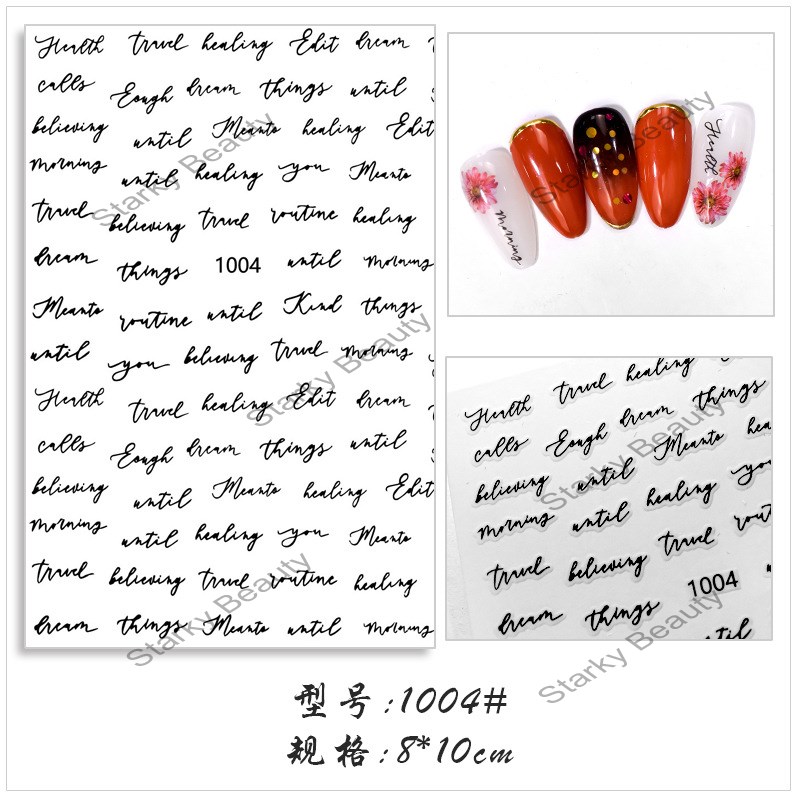 Health travel healing Edit dream
calls Eough dream things until
believing until Meanto healing Edit
morning until healing you Meanto
travel believing travel routine healing
dream things 1004 until morning
Meanto routine until Kind things
until you believing travel morning
Health travel healing Edit dream
calls Eough dream things until
believing until Meanto healing Edit
morning until healing you Meanto
travel believing travel routine healing
dream things Meanto until morning
Health
morning
Health travel healing
calls Eough dream things
believing until Meanto hea
morning until healing you
travel believing travel rout
dream things 1004
til
Starky Beauty
Starky Beauty
Starky Beauty
Starky Beauty
Starky Beauty
Starky Beauty
型号:1004#
规格:8*10cm